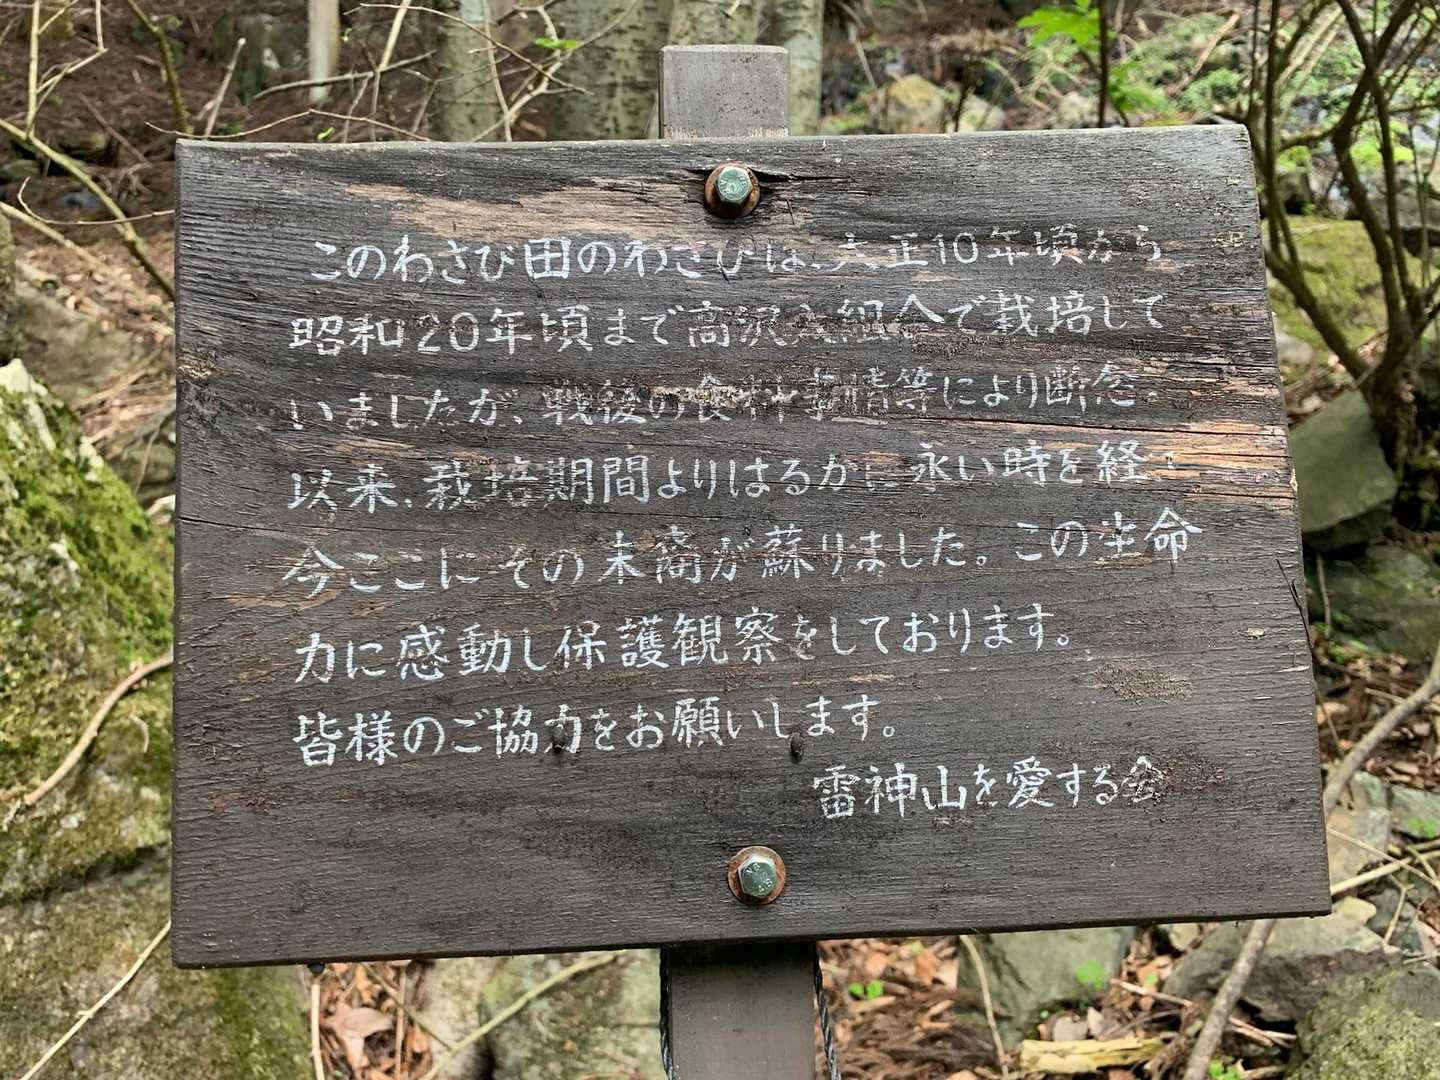 このわさび田のわさびは、大正10年頃から
昭和20年頃まで高沢入組合で栽培して
いましたが、戦後の食料事情等により断念。
以来、栽培期間よりはるかに永い時を経
今ここにその末裔が蘇りました。この生命
力に感動し保護観察をしております。
皆様のご協力をお願いします。
雷神山を愛する会